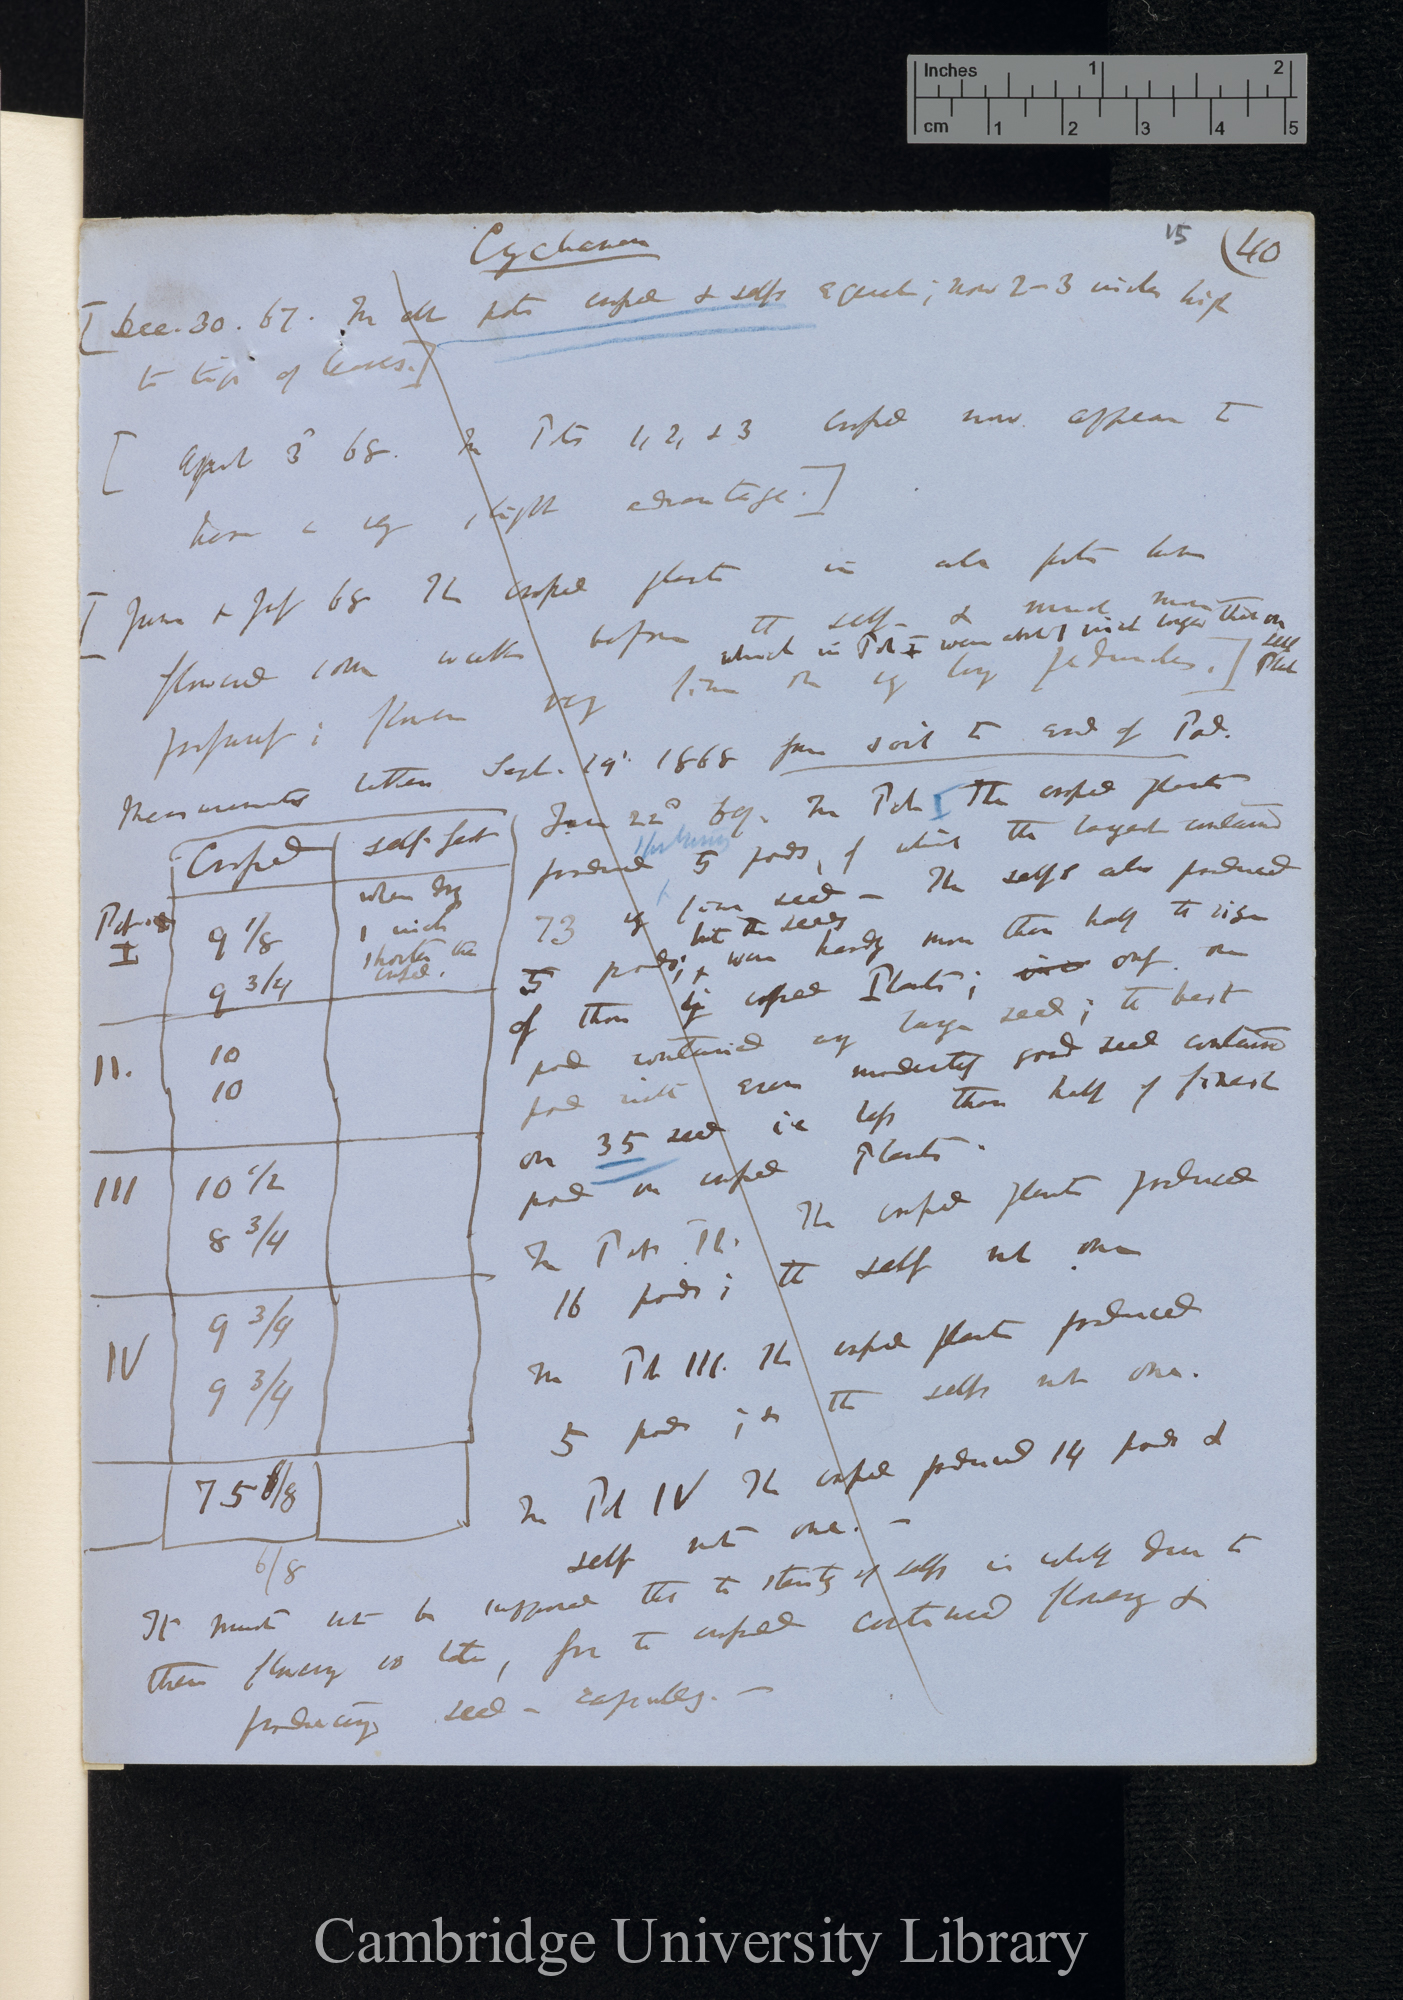 Inches 1 2
cm 1 2 3 4 5
Cyclamen
15 (40
[Dec. 30. 67. In all pots crossed & selfs equal; now 2-3 inches high
to tips of leaves.]
[April 3d 68. In Pots 1, 2, & 3 crossed now appear to
have a very slight advantage.]
[June & July 68 The crossed plants in all pots have
flowered some weeks before the self- & much more
which in Pot I were about 1 inch longer than on self Plant
profusely; flowers very fine on very long peduncles.]
Measurements taken Sept. 29. 1868 from soil to end of Pod.
Crossed
self-fert
Pot
I
9 1/8
9 3/4
when dry
1 inch
shorter than
crossed.
II.
10
10
III
10 1/2
8 3/4
IV
9 3/4
9 3/4
75 6/8
6/8
Jan 22d 69. In Pot I The crossed plants
produced 5 pods, of which the largest contained
73 very fine seed - The selfs also produced
but the seeds
5 pods; were hardly more than half the size
of those by crossed Plants; only one
pod contained very large seed; the best
pod with even moderately good seed contained
on 35 seed ie less than half of finest
pod on crossed Plants.
In Pot II. The crossed plants produced
16 pods; the self not one
In Pot III. The crossed plants produced
5 pods; & the selfs not one.
In Pot IV The crossed produced 14 pods &
self not one. -
It must not be supposed that the sterility of selfs is wholly due to
their flowering so late, for the crossed continued flowering &
producing seed-capsules. -
Cambridge University Library